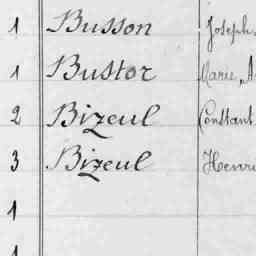 1 Busson Joseph
1 Bustor Marie A
2 Bizeul Constant
3 Bizeul Henri
1
1